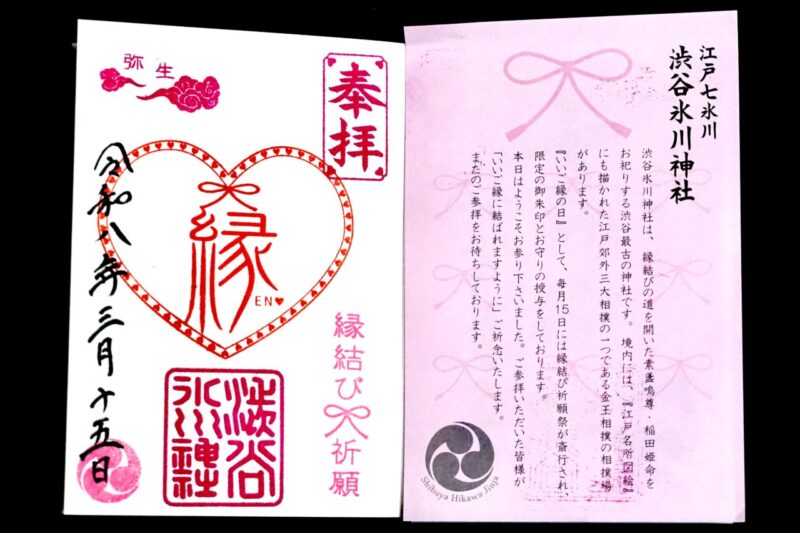 弥生
奉拝
縁
EN♥
令和八年三月十五日
縁結び祈願
澁谷
氷川神社
江戸七氷川
渋谷氷川神社
渋谷氷川神社は、縁結びの道を開いた素盞嗚尊・稲田姫命を
お祀りする渋谷最古の神社です。境内には、『江戸名所図絵』
にも描かれた江戸郊外三大相撲の一つである金王相撲の相撲場
があります。
『いいご縁の日』として、毎月15日には縁結び祈願祭が斎行され、
限定の御朱印とお守りの授与をしております。
本日はようこそお参り下さいました。ご参拝いただいた皆様が
「いいご縁に結ばれますように」ご祈念いたします。
またのご参拝をお待ちしております。
Shibuya Hikawa Jinja